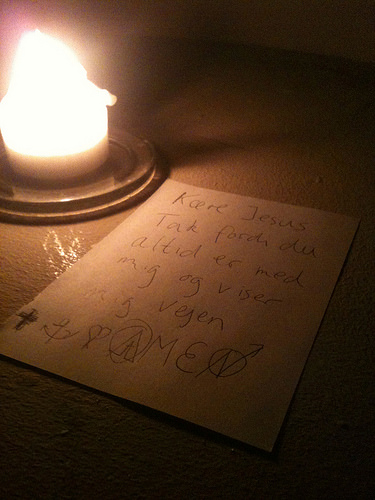 Kære Jesus
Tak fordi du
altid er med
mig og viser
mig vejen
AMEN